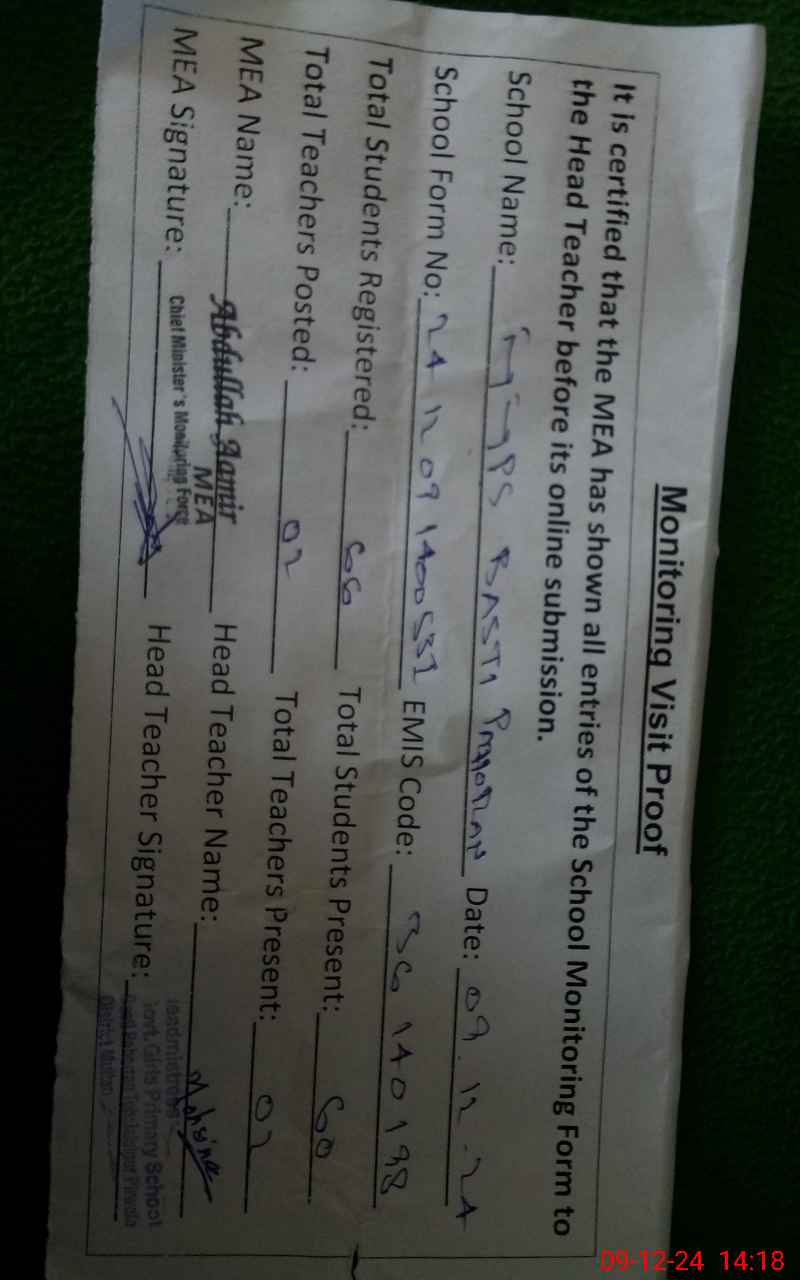 Monitoring Visit Proof
It is certified that the MEA has shown all entries of the School Monitoring Form to
the Head Teacher before its online submission.
School Name: PS BASTI Date: 09.12.24
School Form No: 24 12 09 1400531 EMIS Code: 36140198
Total Students Registered: 66 Total Students Present: 60
Total Teachers Posted: 02 Total Teachers Present: 02
MEA Name: Abdullah Aamir Head Teacher Name: Mohsina
MEA
Chief Minister's Monitoring Force
MEA Signature: Head Teacher Signature:
Headmistress
Govt. Girls Primary School
District Multan
09-12-24 14:18